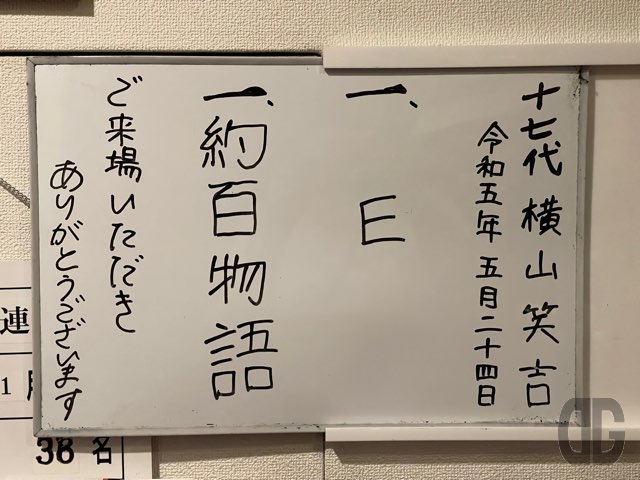 十七代 横山笑吉
令和五年 五月二十四日
一、 E
一、約百物語
ご来場いただき
ありがとうございます
連
1月
36 名
DG